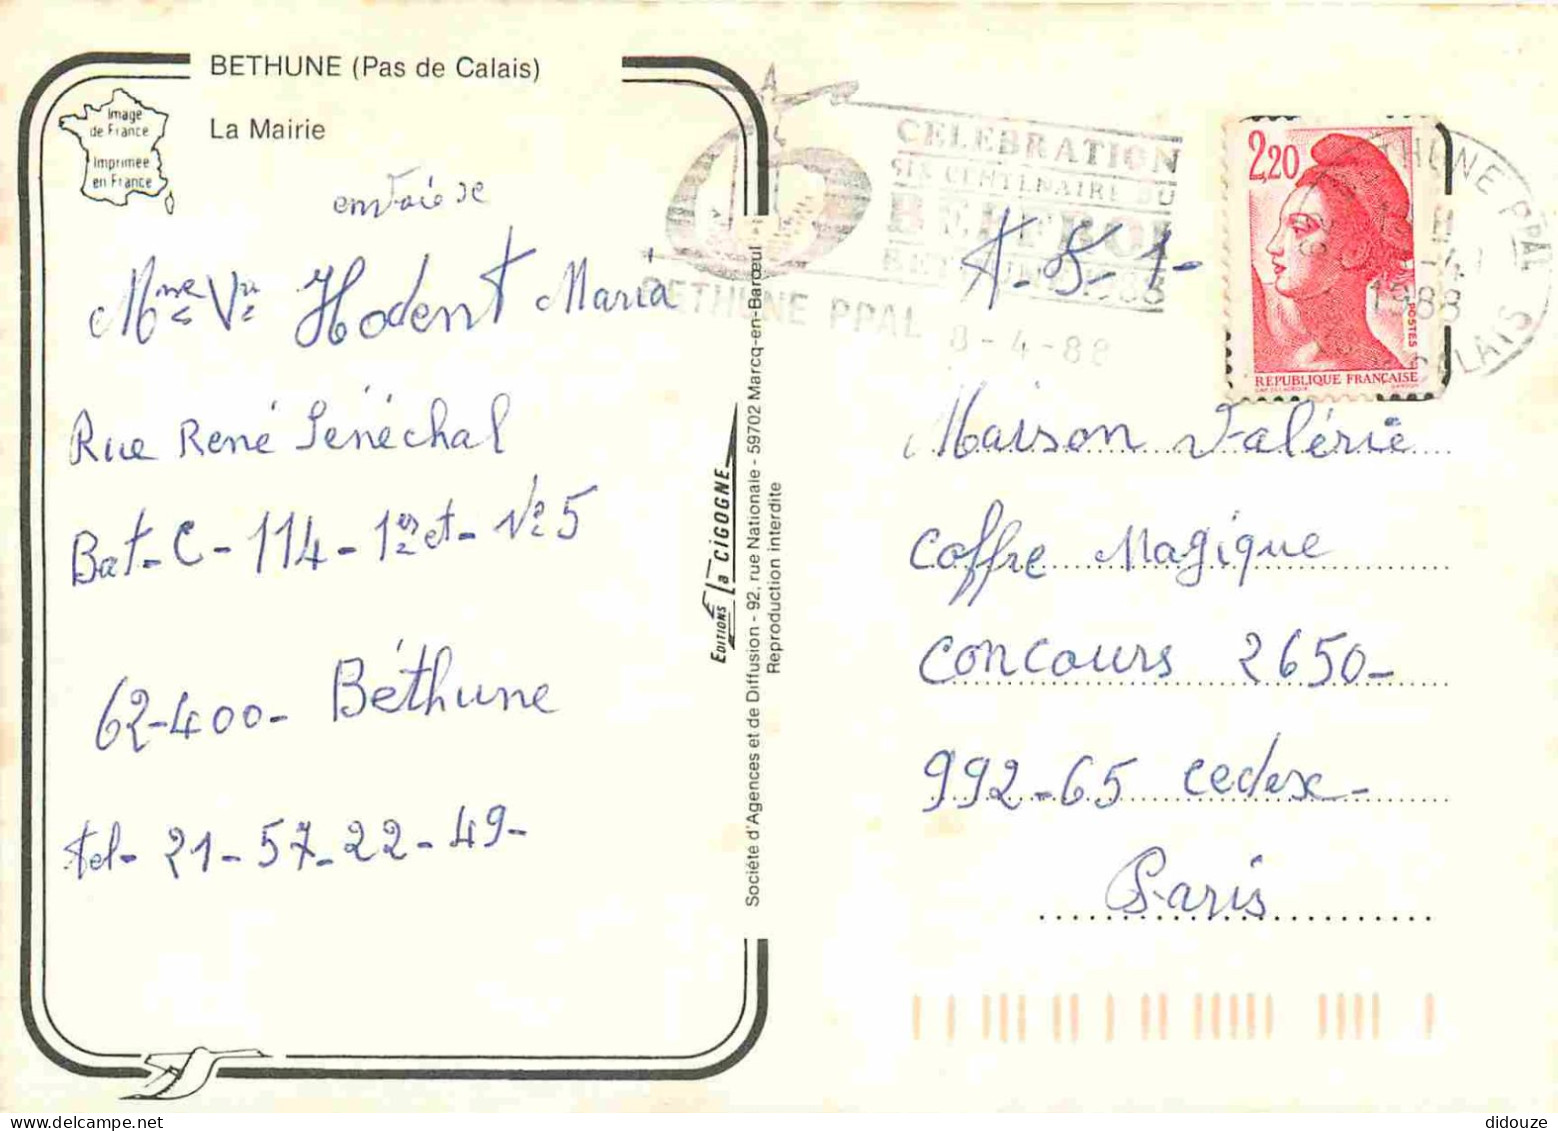 BETHUNE (Pas de Calais)
La Mairie
Image
de France
Imprimée
en France
envoie de
Mme Ve Hodent Maria
Rue René Sénéchal
Bat-C-114-1er et-N°5
62-400- Béthune
tel-21-57-22-49-
EDITIONS La CIGOGNE
Société d'Agences et de Diffusion - 92, rue Nationale - 59702 Marcq-en-Barœul
Reproduction interdite
CELEBRATION
SIX CENTENAIRE DU
BEFFROI
BETHUNE 1988
BETHUNE PPAL 8-4-88
A-5-1-
2,20
POSTES
REPUBLIQUE FRANÇAISE
BETHUNE PPAL
1988
CALAIS
Maison Valérie
Coffre Magique
Concours 2650-
992-65 cedex-
Paris
didouze